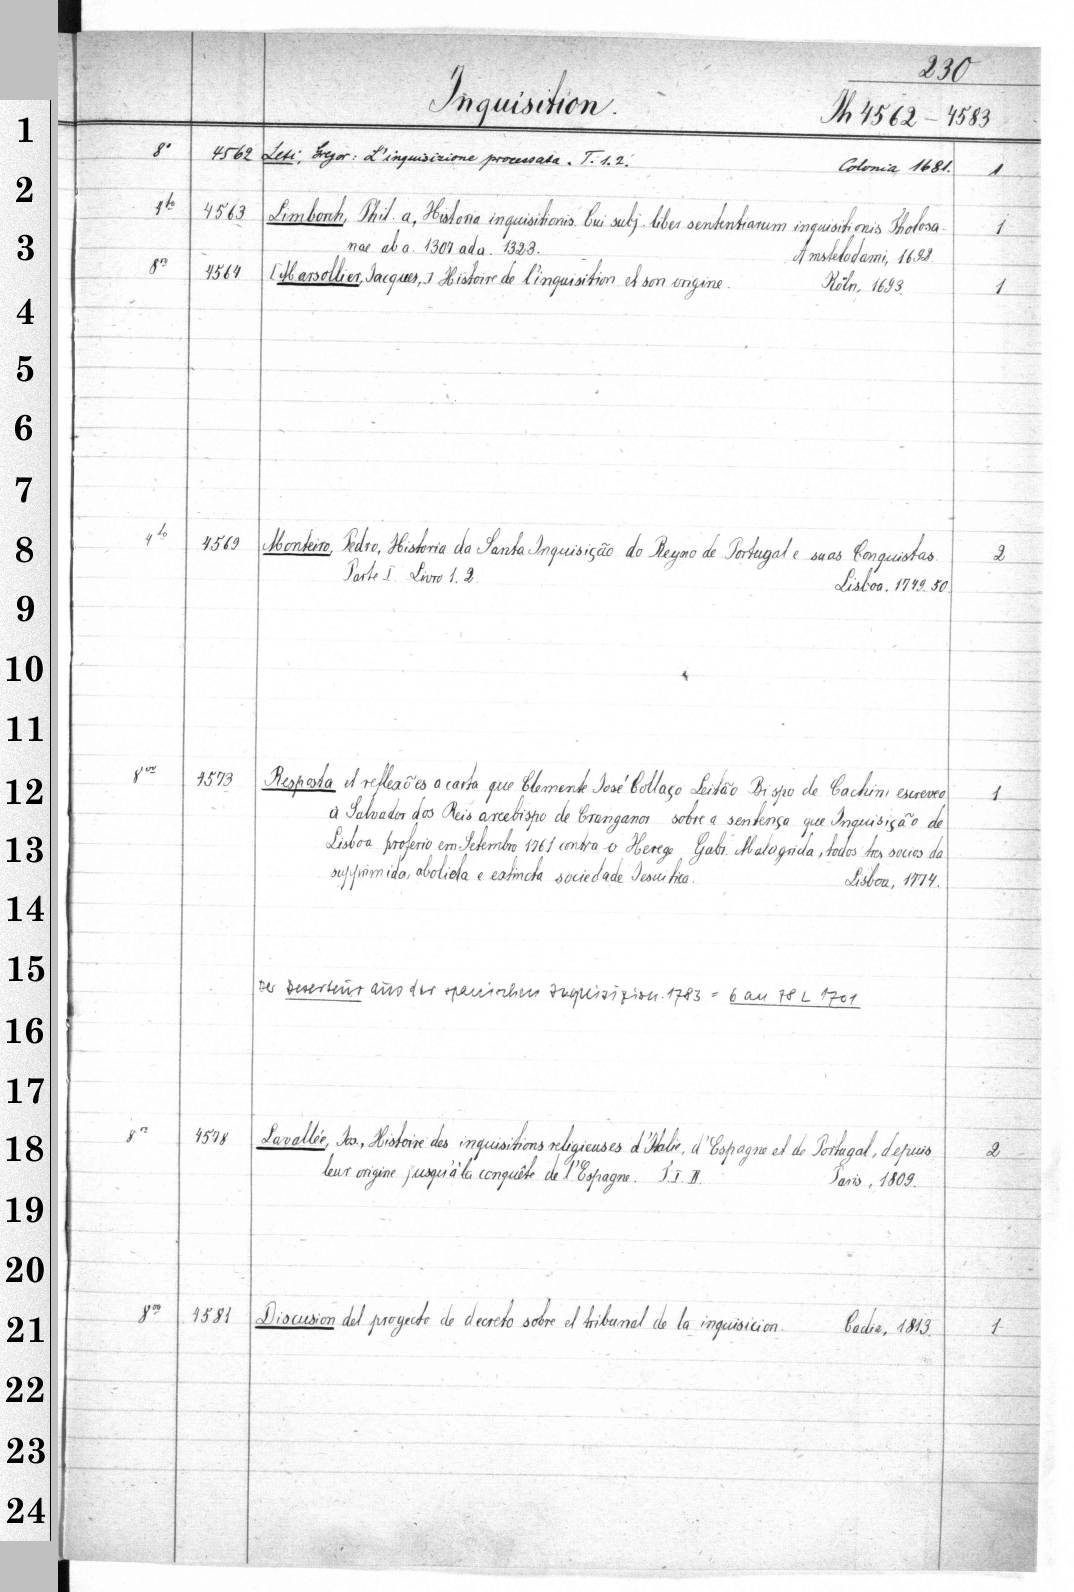 230
Inquisition.
Th 4562 - 4583
1
8° 4562 Leti, Gregor: L'inquisizione processata. T. 1. 2. Colonia 1681. 1
2
4to 4563 Limborch, Phil. a, Historia inquisitionis. Cui subj. liber sententiarum inquisitionis Tholosa- 1
3
nae ab a. 1307 ad a. 1323. Amstelodami, 1692.
8vo 4564 [Marsollier, Jacques,] Histoire de l'inquisition et son origine. Köln, 1693. 1
4
5
6
7
8
4to 4569 Monteiro, Pedro, Historia da Santa Inquisição do Reyno de Portugal e suas Conquistas. 2
Parte I. Livro 1. 2. Lisboa. 1749. 50.
9
10
11
12
8vo 4573 Resposta et reflexões a carta que Clemente José Collaço Leitão Bispo de Cachim escreveo 1
a Salvador dos Reis arcebispo de Cranganor sobre a sentença que Inquisição de
13
Lisboa proferio em Setembro 1761 contra o Herege Gabr. Malagrida, todos tres socios da
supprimida, abolida e extincta sociedade Jesuitica. Lisboa, 1774.
14
15
Der Deserteur aus der spanischen Inquisizion. 1783 = 6 an 78 L 1701
16
17
18
8vo 4578 Lavallée, Jos., Histoire des inquisitions religieuses d'Italie, d'Espagne et de Portugal, depuis 2
leur origine jusqu'à la conquête de l'Espagne. T. I. II. Paris, 1809.
19
20
21
8vo 4581 Discusion del proyecto de decreto sobre el tribunal de la inquisicion. Cadiz, 1813. 1
22
23
24